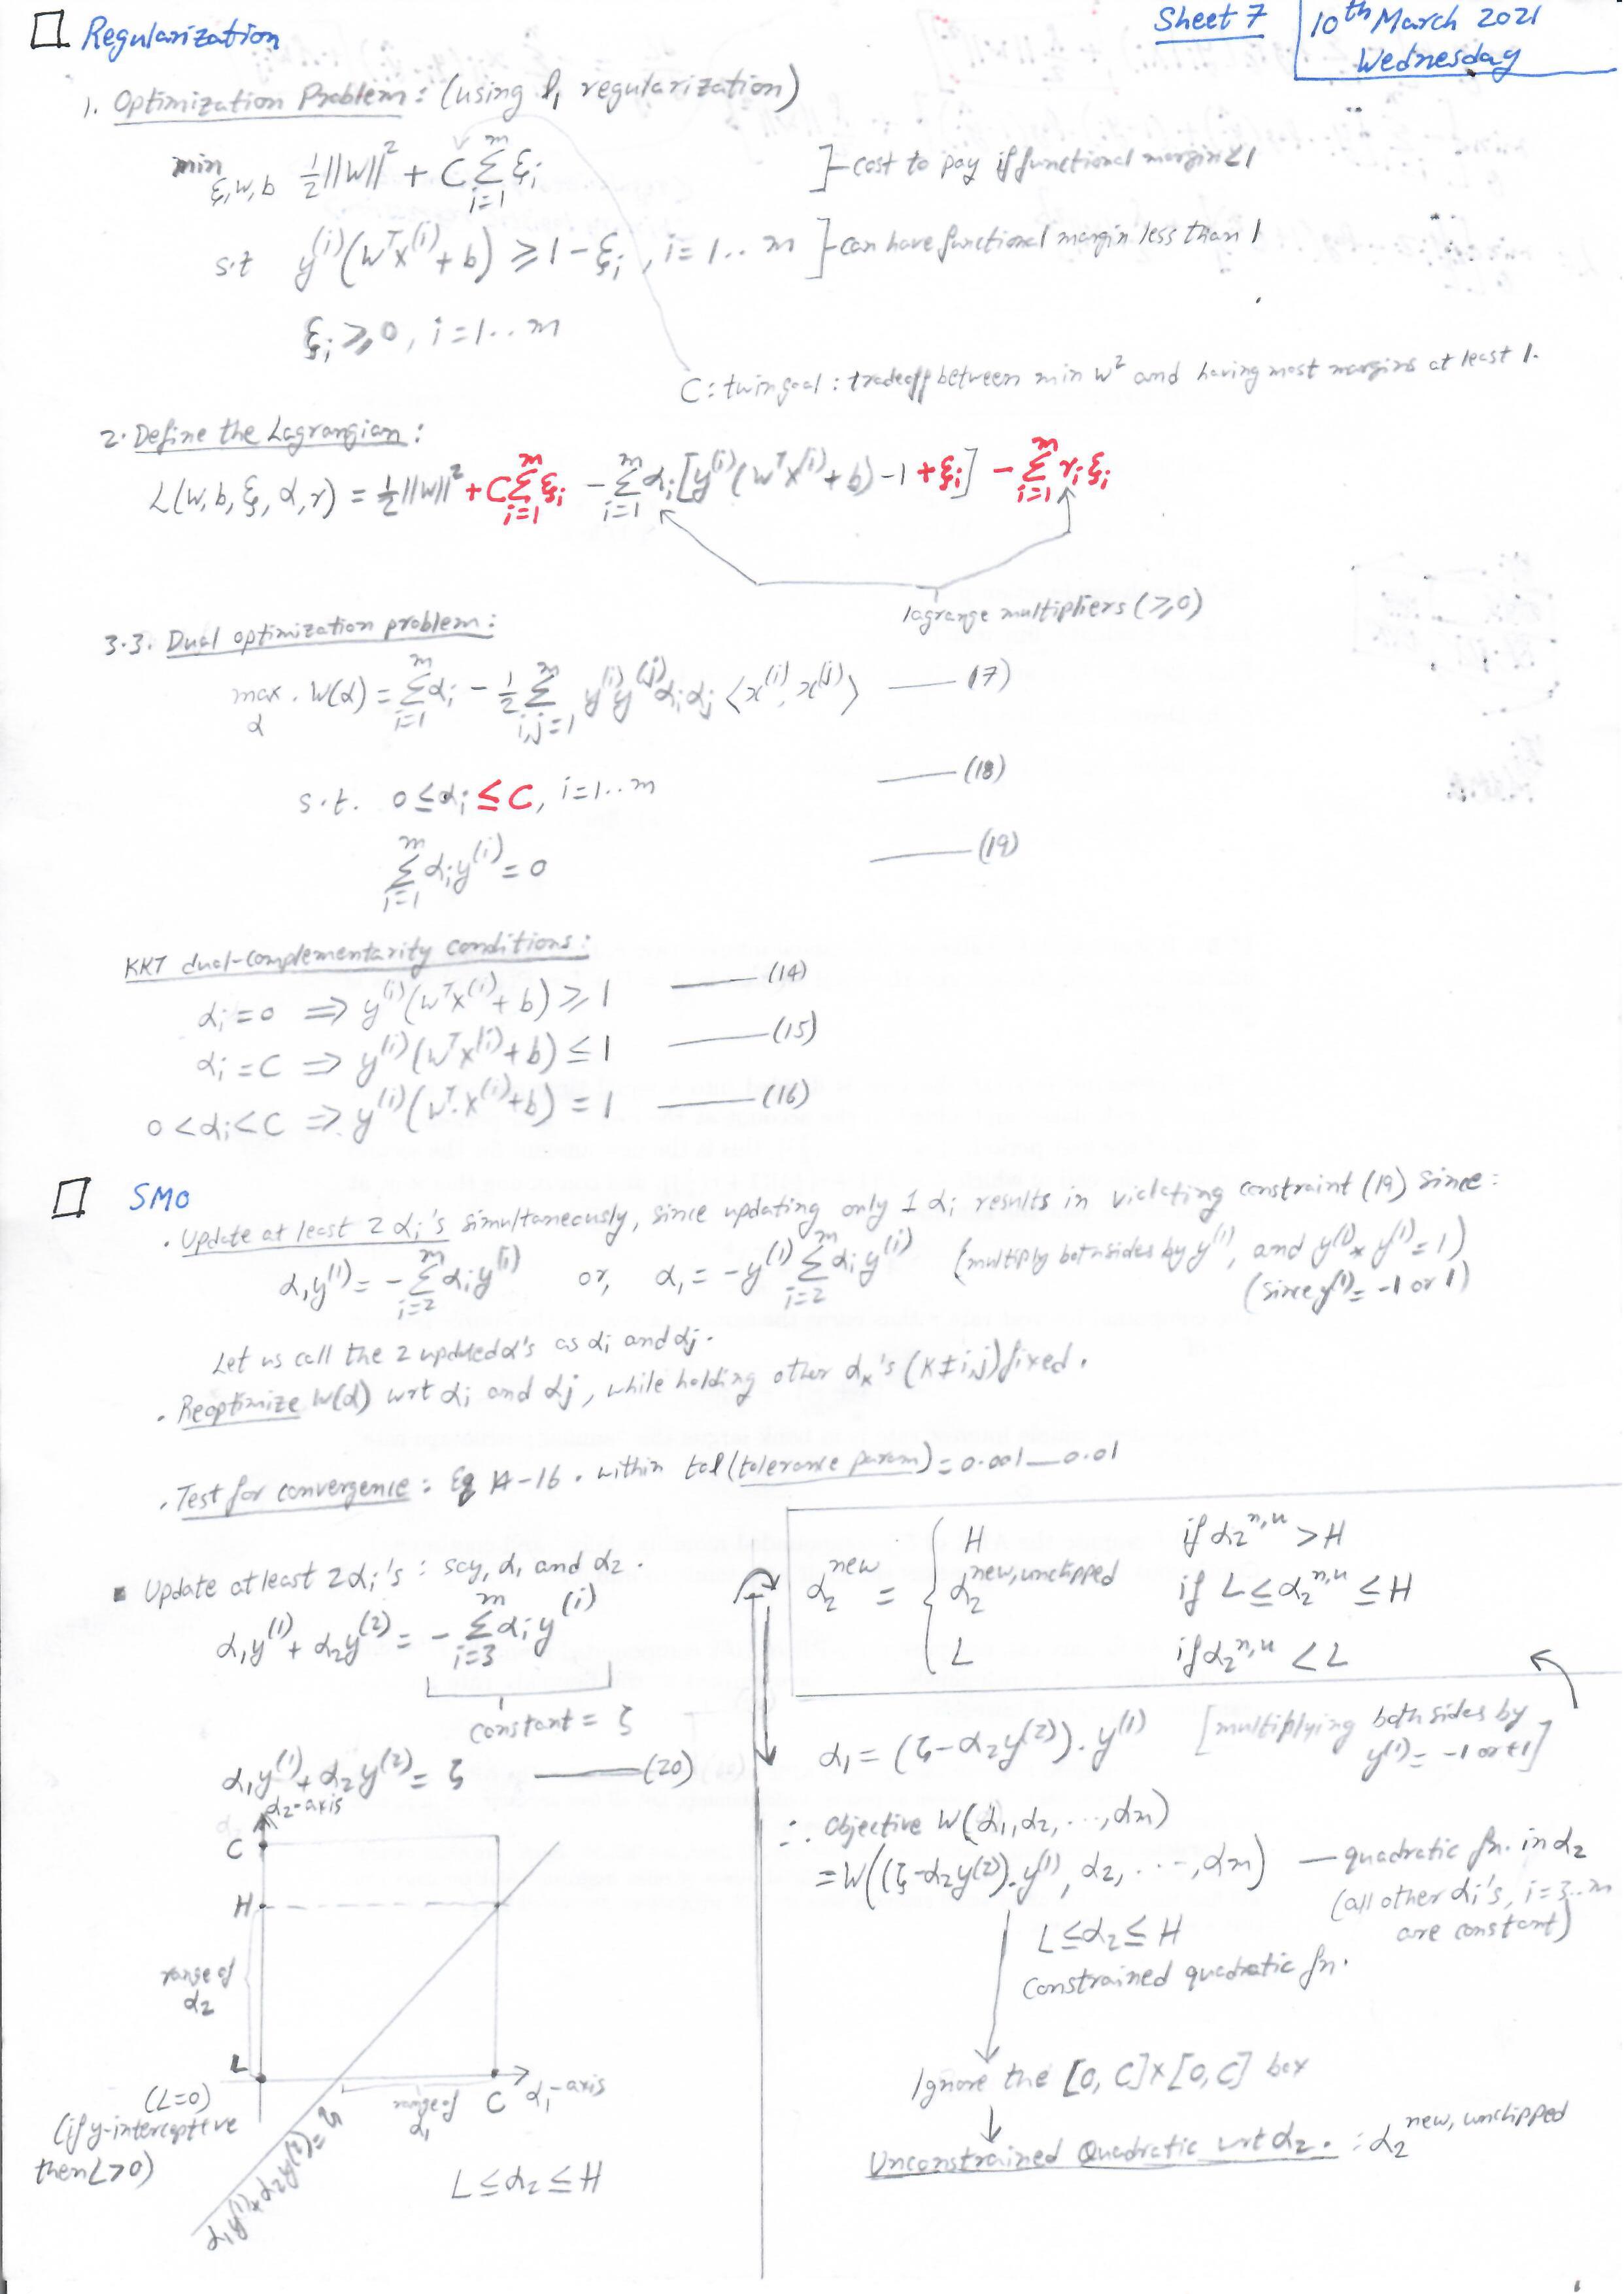 Regularization
Sheet 7
10th March 2021
Wednesday
1. Optimization Problem: (using l₁ regularization)
min ξ,w,b ½||W||² + C Σ_{i=1}^{m} ξᵢ ] cost to pay if functional margin < 1
s.t y⁽ⁱ⁾(Wᵀx⁽ⁱ⁾ + b) ≥ 1 - ξᵢ, i=1..m ] can have functional margin less than 1
ξᵢ ≥ 0, i=1..m
C: twin goal: tradeoff between min w² and having most margins at least 1.
2. Define the Lagrangian:
L(w, b, ξ, α, r) = ½||W||² + C Σ_{i=1}^{m} ξᵢ - Σ_{i=1}^{m} αᵢ[y⁽ⁱ⁾(Wᵀx⁽ⁱ⁾ + b) - 1 + ξᵢ] - Σ_{i=1}^{m} rᵢξᵢ
lagrange multipliers (≥0)
3.3. Dual optimization problem:
max α . W(α) = Σ_{i=1}^{m} αᵢ - ½ Σ_{i,j=1}^{m} y⁽ⁱ⁾y⁽ʲ⁾αᵢαⱼ ⟨x⁽ⁱ⁾, x⁽ʲ⁾⟩ — (17)
s.t. 0 ≤ αᵢ ≤ C, i=1..m — (18)
Σ_{i=1}^{m} αᵢy⁽ⁱ⁾ = 0 — (19)
KKT dual-complementarity conditions:
αᵢ = 0 ⇒ y⁽ⁱ⁾(Wᵀx⁽ⁱ⁾ + b) ≥ 1 — (14)
αᵢ = C ⇒ y⁽ⁱ⁾(Wᵀx⁽ⁱ⁾ + b) ≤ 1 — (15)
0 < αᵢ < C ⇒ y⁽ⁱ⁾(Wᵀ.x⁽ⁱ⁾ + b) = 1 — (16)
SMO
. Update at least 2 αᵢ's simultaneously, since updating only 1 αᵢ results in violating constraint (19) since:
α₁y⁽¹⁾ = - Σ_{i=2}^{m} αᵢy⁽ⁱ⁾ or, α₁ = -y⁽¹⁾ Σ_{i=2}^{m} αᵢy⁽ⁱ⁾ (multiply both sides by y⁽¹⁾, and y⁽¹⁾ × y⁽¹⁾ = 1)
(since y⁽¹⁾ = -1 or 1)
Let us call the 2 updated α's as αᵢ and αⱼ.
. Reoptimize W(α) wrt αᵢ and αⱼ, while holding other αₖ's (K≠i,j) fixed.
. Test for convergence: Eq 14-16. within tol (tolerance param) = 0.001—0.01
▪ Update at least 2 αᵢ's: say, α₁ and α₂.
α₁y⁽¹⁾ + α₂y⁽²⁾ = - Σ_{i=3}^{m} αᵢy⁽ⁱ⁾
constant = ζ
α₁y⁽¹⁾ + α₂y⁽²⁾ = ζ — (20)
α₂-axis
C
H
range of
α₂
L
(L=0)
(if y-interceptive
then L>0)
range of
α₁
C α₁-axis
α₁y⁽¹⁾+α₂y⁽²⁾= ζ
L ≤ α₂ ≤ H
α₂^{new} = { H if α₂^{n,u} > H
α₂^{new,unclipped} if L ≤ α₂^{n,u} ≤ H
L if α₂^{n,u} < L
α₁ = (ζ - α₂y⁽²⁾).y⁽¹⁾ [multiplying both sides by
y⁽¹⁾ = -1 or +1]
∴ Objective W(α₁, α₂, ..., αm)
= W((ζ-α₂y⁽²⁾).y⁽¹⁾, α₂, ..., αm) — quadratic fn. in α₂
(all other αᵢ's, i=3..m
are constant)
L ≤ α₂ ≤ H
Constrained quadratic fn.
Ignore the [0, C]×[0, C] box
Unconstrained Quadratic wrt α₂. : α₂^{new, unclipped}